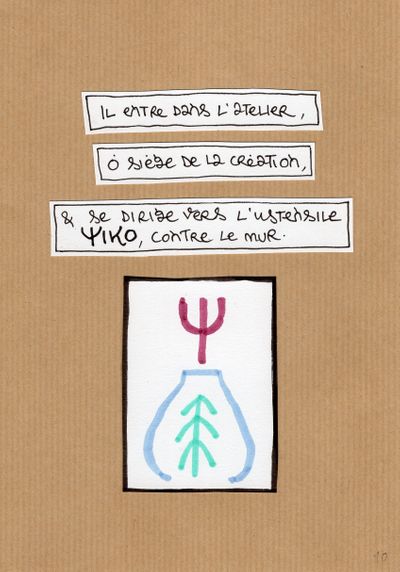 IL entre dans L'atelier,
Ô siège de la création,
& se dirige vers l'ustensile
ΨIKO, contre le mur.
10